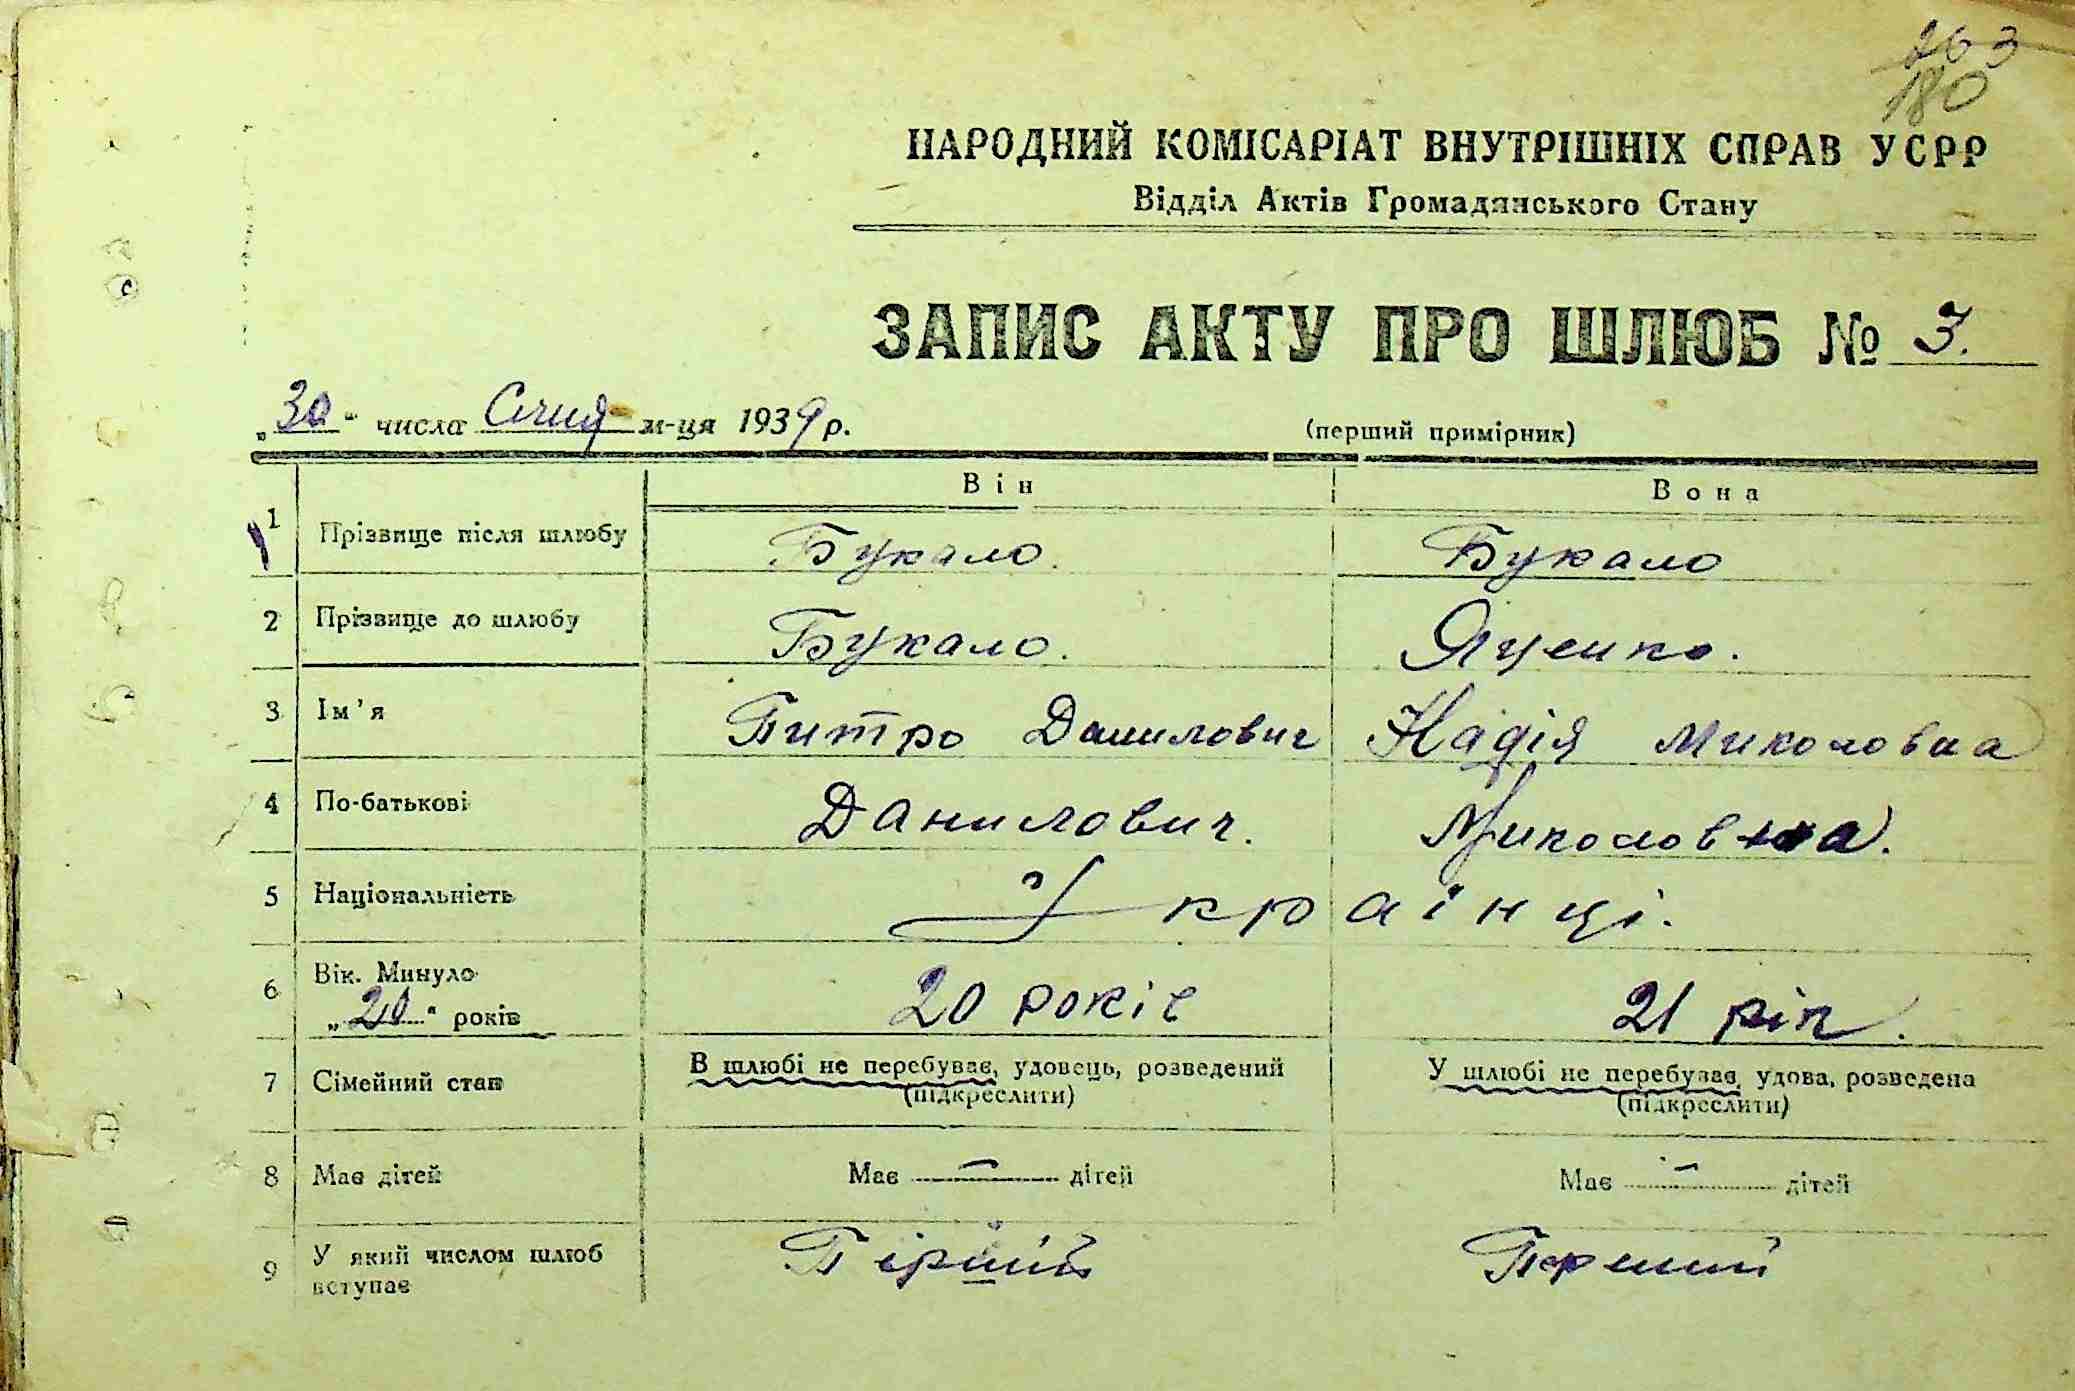 263
180
НАРОДНИЙ КОМІСАРІАТ ВНУТРІШНІХ СПРАВ УСРР
Відділ Актів Громадянського Стану
ЗАПИС АКТУ ПРО ШЛЮБ № 3.
„30“ числа Січня м-ця 1939 р.
(перший примірник)
Він Вона
1 Прізвище після шлюбу Букало. Букало
2 Прізвище до шлюбу Букало. Яценко.
3 Ім'я Питро Данилович Надія Миколовна
4 По-батькові Данилович. Миколовна.
5 Національність Українці.
6 Вік. Минуло 20 років 21 рік.
„20“ років
7 Сімейний стан В шлюбі не перебуває, удовець, розведений У шлюбі не перебуває, удова, розведена
(підкреслити) (підкреслити)
8 Має дітей Має — дітей Має — дітей
9 У який числом шлюб Пірший Перший
вступає